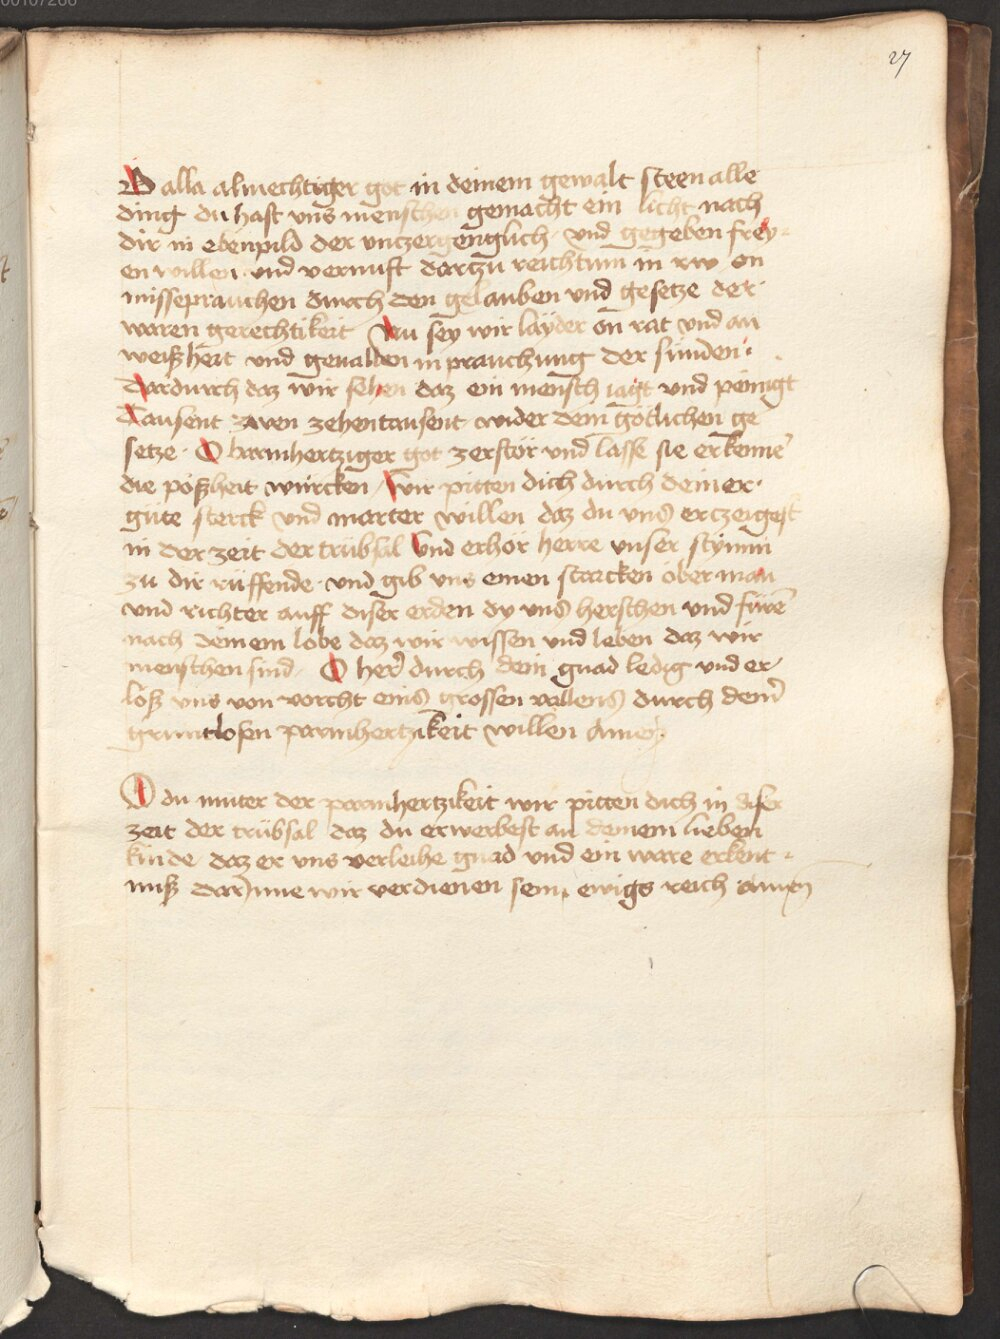 00107266
27
O alla almechtiger got in deinem gewalt steen alle
ding du hast vns menschen gemacht ein licht nach
dir in ebenpild der vnczergenglich · vnd gegeben frey-
en willen vnd vernuft darczu reichtum in rw on
misseprauchen durch den gelauben vnd gesetze der
waren gerechtikeit Nu sey wir layder on rat vnd an
weißheit vnd geuallen in prauchung der sünden ·
Dardurch daz wir sehen daz ein mensch iagt vnd peinigt
Tausent zwen zehentausent wider dem götlichen ge
setze · O barmhertziger got zerstör vnd lasse sie erkenne
die poßheit würcken / Wir pitten dich durch deiner ·
güte sterck vnd marter willen daz du vns erczeigest
in der zeit der trübsal Vnd erhör herre vnser stymm
zu dir rüffende · vnd gib vns einen starcken öberman
vnd richter auff diser erden dy vns herschen vnd füre
nach deinem lobe daz wir wissen vnd leben daz wir
menschen sind · O her durch dein gnad ledig vnd er
löß vns von vorcht eins grossen vallens durch dein
gruntlosen parmhertzikeit willen Amen

O du muter der parmhertzikeit wir pitten dich in diser
zeit der trübsal daz du erwerbest an deinem lieben
kinde daz er vns verleihe gnad vnd ein ware erkent-
nuß darinne wir verdienen sein ewigs reich Amen